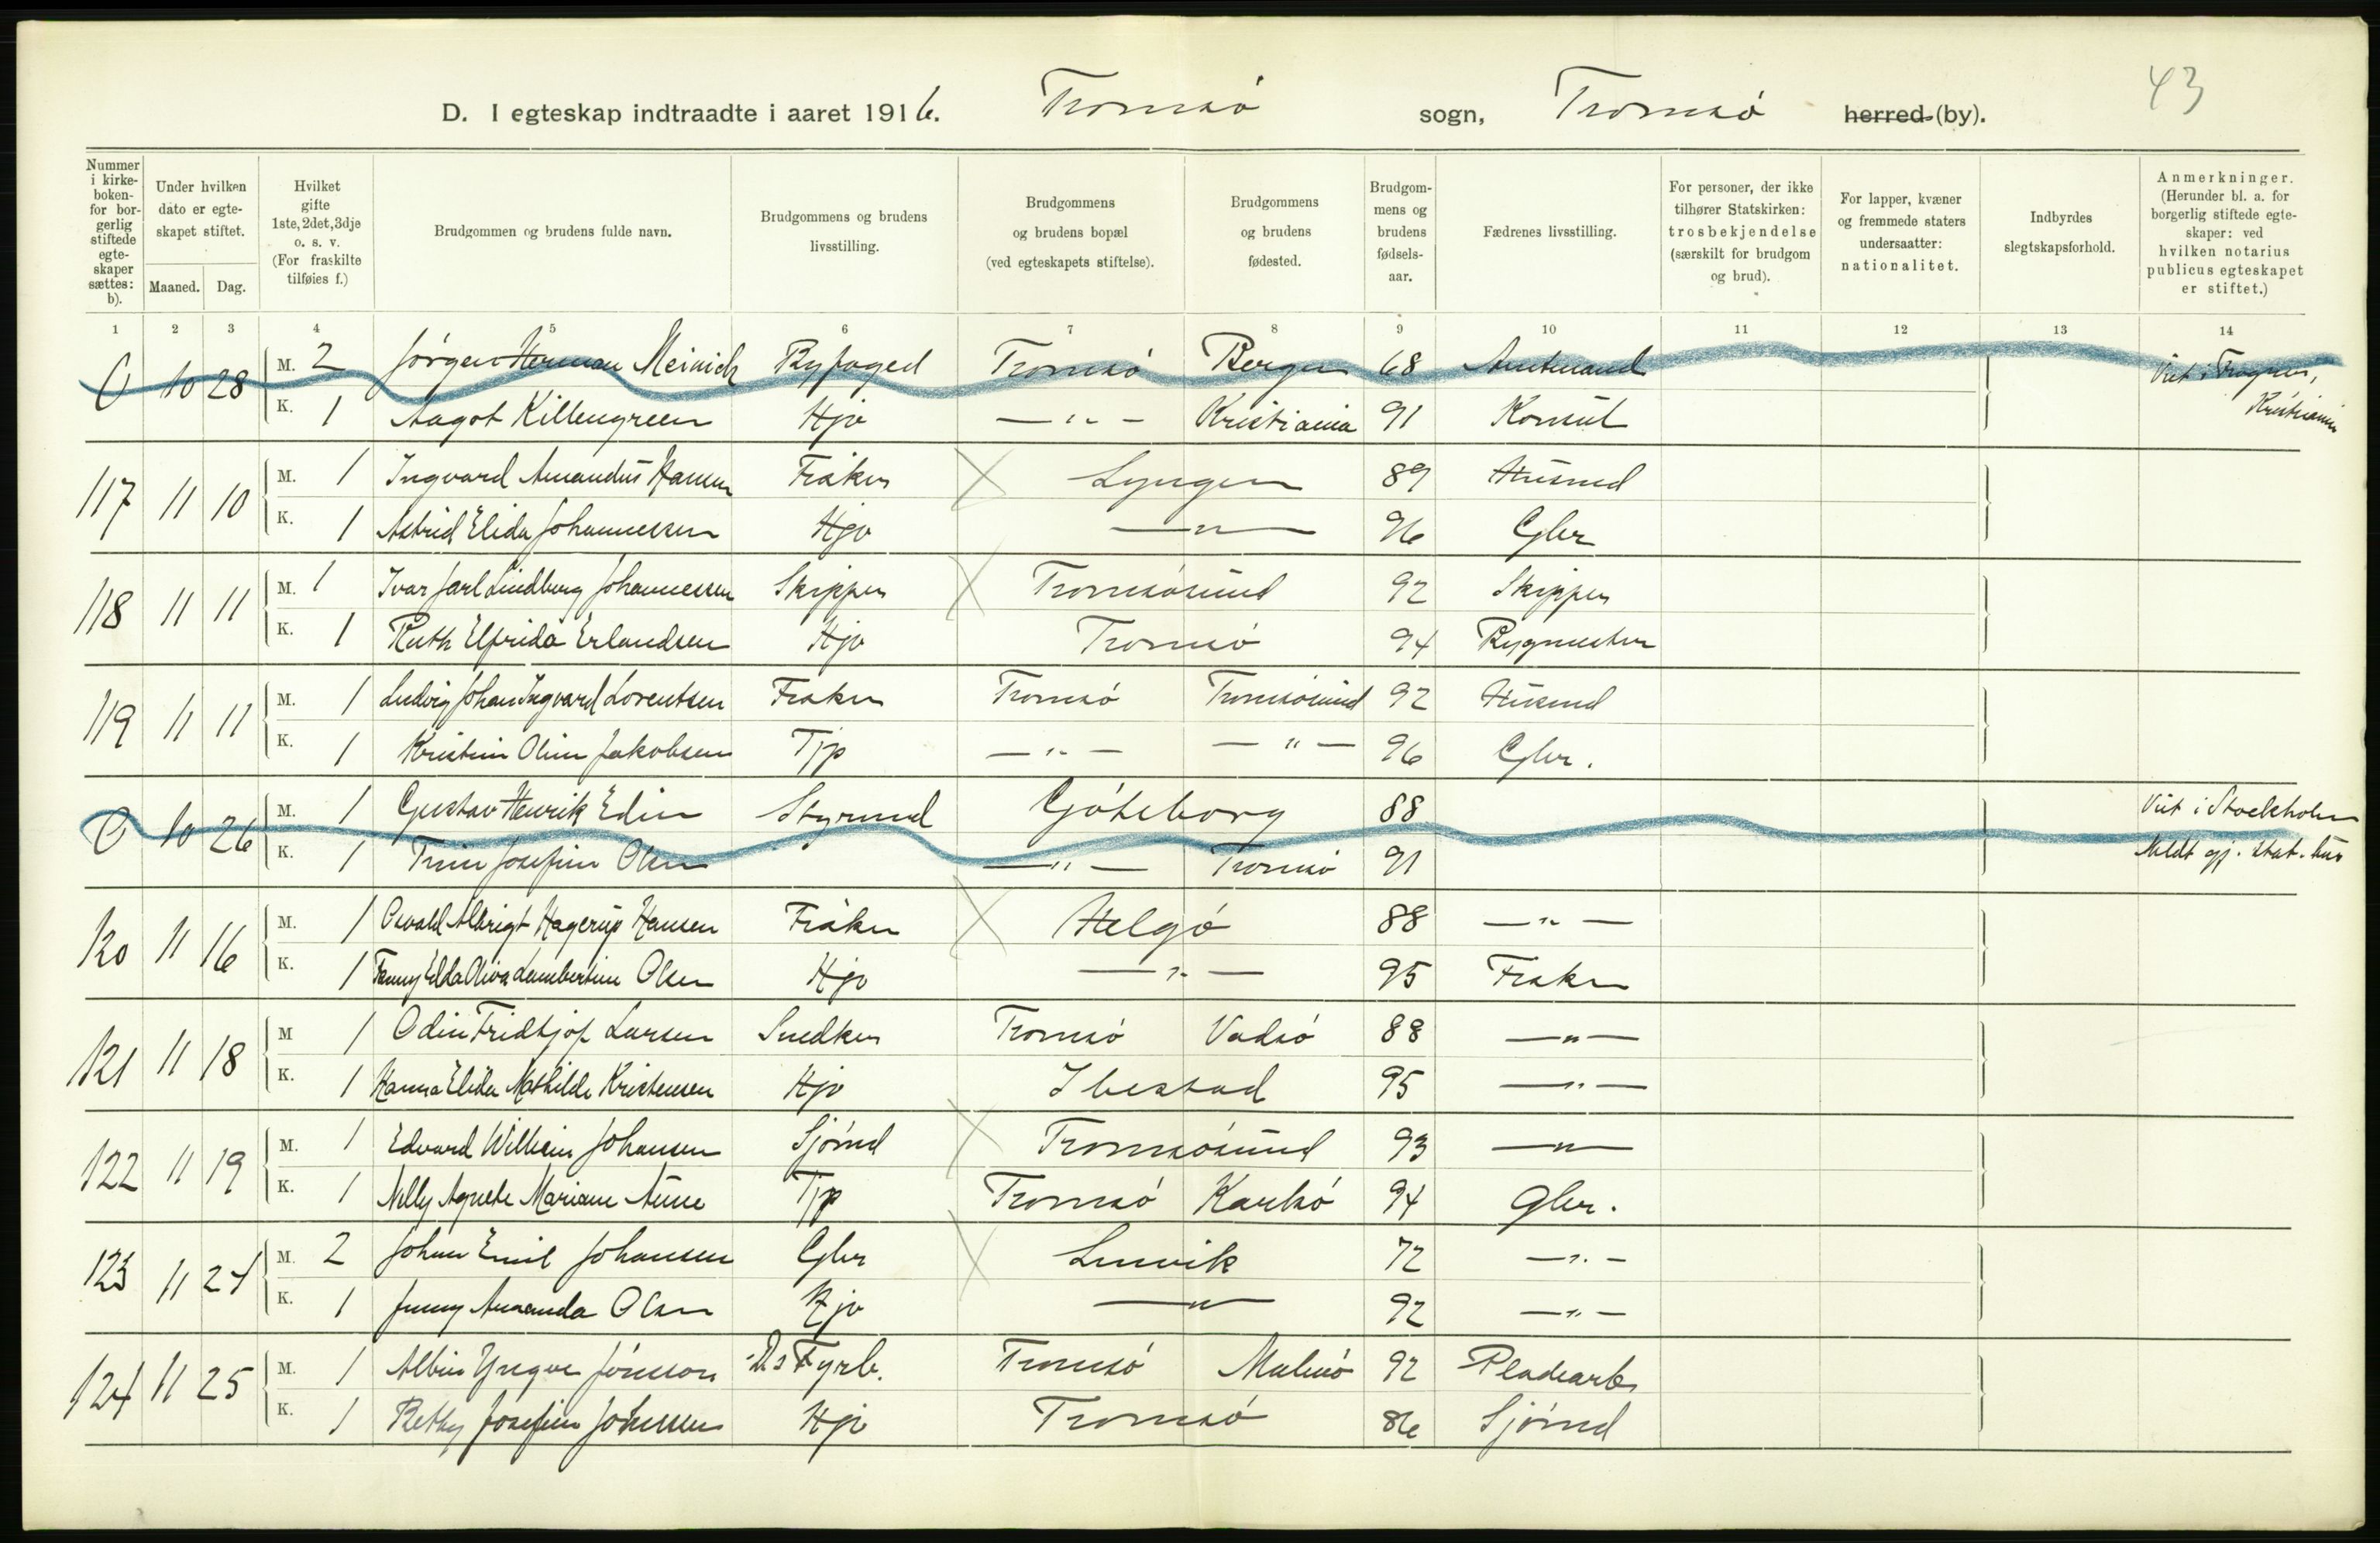 43
D. I egteskap indtraadte i aaret 1916. Tromsø sogn, Tromsø herred (by).
Nummer i kirkeboken for borgerlig stiftede egteskaper sættes: b).
Under hvilken dato er egteskapet stiftet.
Maaned. Dag.
Hvilket gifte 1ste, 2det, 3dje o. s. v. (For fraskilte tilføies f.)
Brudgommen og brudens fulde navn.
Brudgommens og brudens livsstilling.
Brudgommens og brudens bopæl (ved egteskapets stiftelse).
Brudgommens og brudens fødested.
Brudgommens og brudens fødselsaar.
Fædrenes livsstilling.
For personer, der ikke tilhører Statskirken: trosbekjendelse (særskilt for brudgom og brud).
For lapper, kvæner og fremmede staters undersaatter: nationalitet.
Indbyrdes slegtskapsforhold.
Anmerkninger. (Herunder bl. a. for borgerlig stiftede egteskaper: ved hvilken notarius publicus egteskapet er stiftet.)
1 2 3 4 5 6 7 8 9 10 11 12 13 14
0 10 28 M. 2 Jørgen Herman Meinich Byfoged Tromsø Bergen 68 Amtmand Viet i Frogner, Kristiania
K. 1 Aagot Killengreen Hjv — " — Kristiania 91 Konsul
117 11 10 M. 1 Ingvard Amandus Hansen Fisker Lyngen 89 Husmd
K. 1 Astrid Elida Johannessen Hjv — " — 96 Gbr
118 11 11 M. 1 Ivar Jarl Lindberg Johannessen Skipper Tromsøsund 92 Skipper
K. 1 Ruth Elfrida Erlandsen Hjv Tromsø 94 Bygmester
119 11 11 M. 1 Ludvig Johan Ingvard Lorentsen Fisker Tromsø Tromsøsund 92 Husmd
K. 1 Kristine Oline Jakobsen Tjp — " — — " — 96 Gbr.
0 10 26 M. 1 Gustav Henrik Edin Styrmd Gøteborg 88 Viet i Stockholm
K. 1 Trine Josefine Olsen — " — Tromsø 91 Meldt gj. Stat.
120 11 16 M. 1 Osvald Albrigt Hagerup Hansen Fisker Helgø 88 — " —
K. 1 Fanny Elda Oliva Lambertine Olsen Hjv — " — 95 Fisker
121 11 18 M 1 Odin Fridtjof Larsen Snedker Tromsø Vadsø 88 — " —
K. 1 Hanna Elida Mathilde Kristensen Hjv Ibestad 95 — " —
122 11 19 M. 1 Edvard Wilhelm Johansen Sjømd Tromsøsund 93 — " —
K. 1 Nelly Agnete Mariane Aune Tjp Tromsø Karlsø 94 Gbr.
123 11 24 M. 2 Johan Emil Johansen Gbr Lenvik 72 — " —
K. 1 Jenny Amanda Olsen Hjv — " — 92 — " —
124 11 25 M. 1 Albin Yngve Jönsson Ds Fyrb. Tromsø Malmø 92 Pladearb
K. 1 Betzy Josefine Johnsen Hjv Tromsø 86 Sjømd